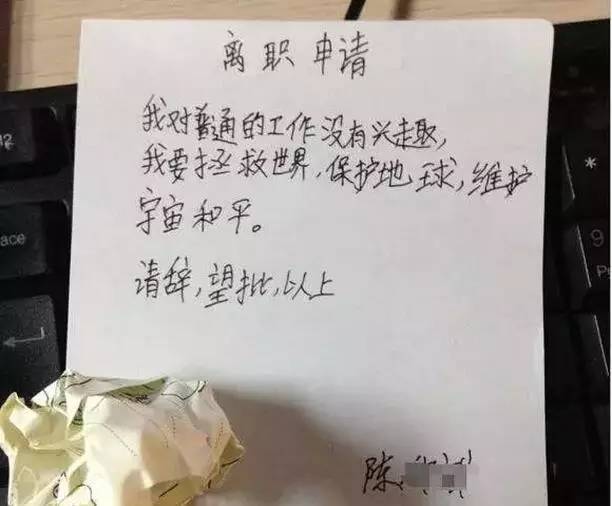 离职申请
我对普通的工作没有兴趣,
我要拯救世界,保护地球,维护
宇宙和平。
请辞,望批,以上
陈
*
9
ace